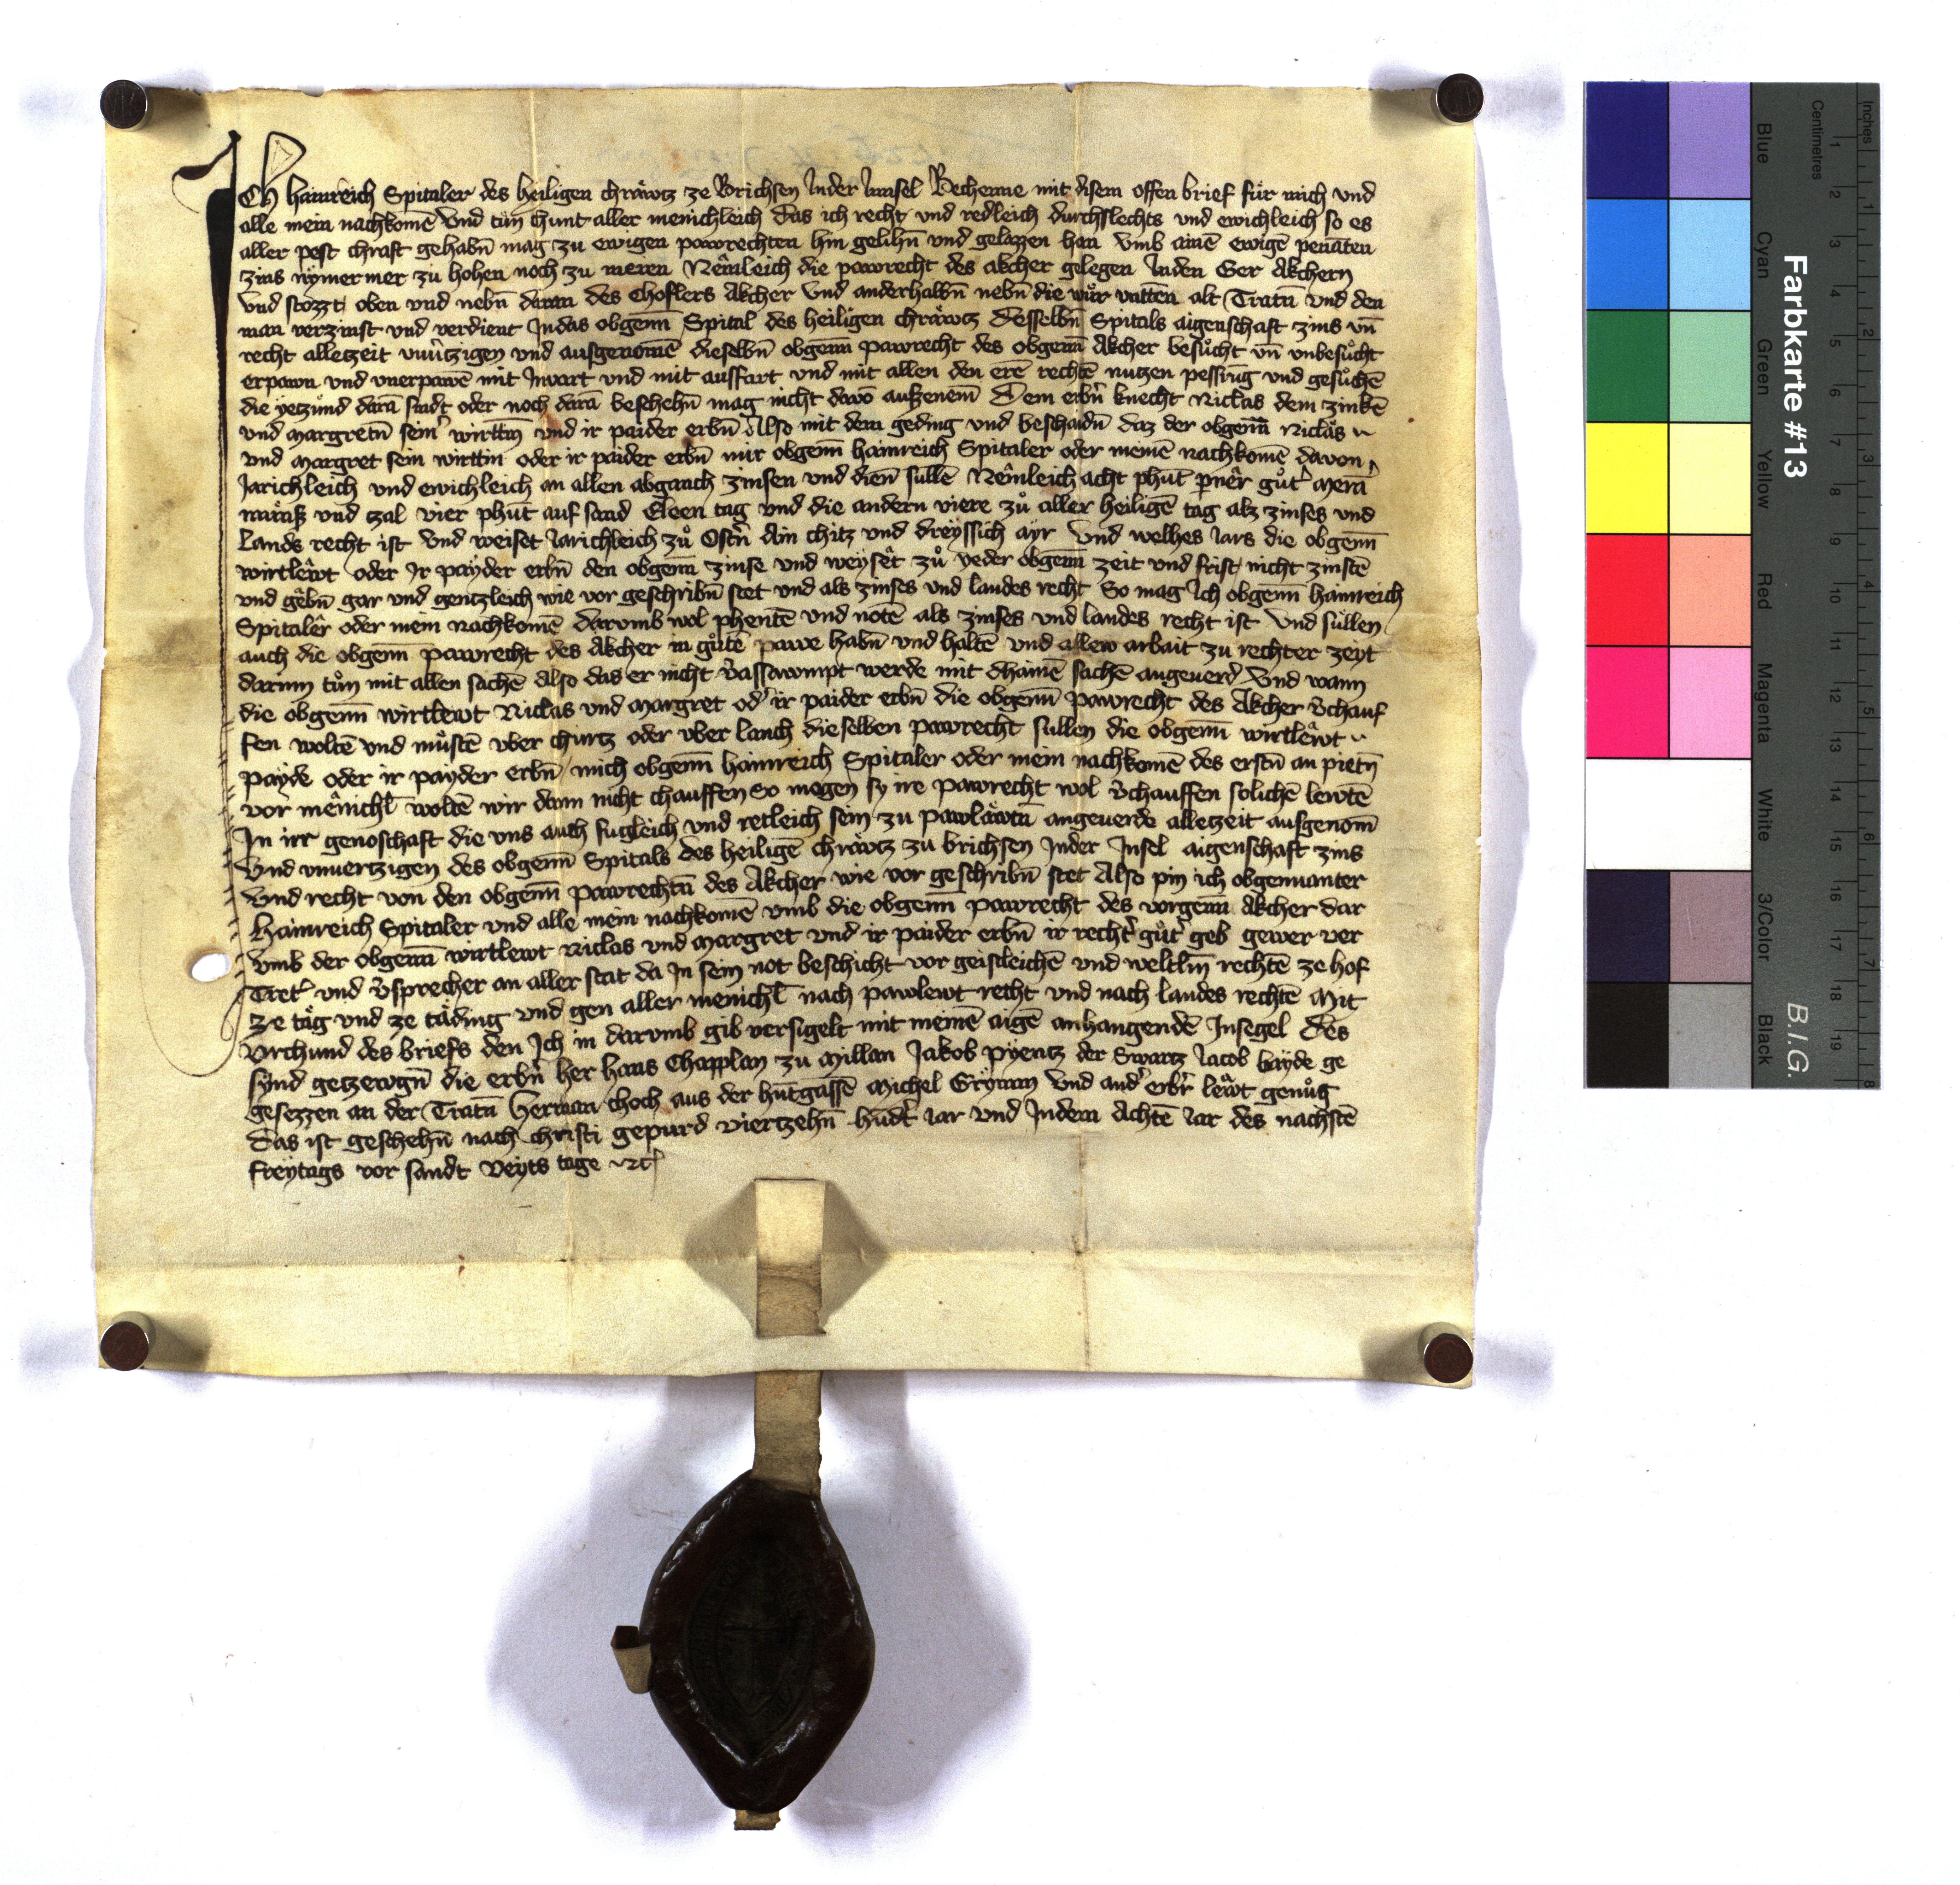 ICh hainreich Spitaler des heiligen chräwtz ze Brichsen Inder Innsel Bechenne mit disem offen brief für mich und
alle mein nachkomē Vnd tün chunt aller menichleich das ich recht und redleich durchslechts und ewichleich so es
aller pest chraft gehabn̄ mag zu ewigen pawrechten hin gelihn̄ und gelazzen han vmb ainē ewigē penāten
zins nymermer zu hohen noch zu meren Nemleich die pawrecht des akcher gelegen Inden Ger Akchern
Vnd stozzt oben und nebn̄ daran des Choflers Akcher Vnd anderhalbn̄ nebn̄ die wůr vnttēn alt Tratn̄ Vnd den
man verzinst und verdient Indas obgenn̄ Spital des heiligen chräwtz Desselbn̄ Spitals aigenschaft zins vn̄
recht alletzeit vnuͤtzigen und ausgenomē dieselbn̄ obgenn̄ pawrecht des obgenn̄ Akcher besůcht vn̄ vnbesůcht
erpawn und vnerpawē mit Invart und mit auffart und mit allen den erē rechtē nutzen pessrūg und gesůchē
die yetzůnd darā sindt oder noch darā beschehn̄ mag nicht davō auszenem̄ Dem erbn̄ knecht Niclas dem zinkē
und Margretn̄ sein̄ wirttin̄ und ir paider erbn̄ Also mit dem geding und beschaidn̄ daz der obgenn̄ Niclas
und Margret sein wirttin oder ir paider erbn̄ mir obgenn̄ hainreich Spitaler oder meinē nachkomē davon
Jarichleich und ewichleich an allen abganch zinsen und dien̄ sullē Nemleich acht phūt pnēr gůt̄ Merā
mäsz und tzal vier phūt auf sand Eleen tag und die andern viere zů aller heiligē tag alz zinses und
Lands recht ist Vnd weiset Jarichleich zů Ostn̄ Ain chitz und dreyssich ayr Vnd welhes Jars die obgenn̄
wirtlewt oder Ir payder erbn̄ den obgenn̄ zinse und weyset zů yeder obgenn̄ zeit und frist nicht zinstē
und gebn̄ gar und gentzleich wie vor geschribn̄ stet und als zinses und landes recht So mag Ich obgenn̄ hainreich
Spitaler oder mein nachkomē darumb wol phentē und notē als zinses und landes recht ist Vnd süllen
auch die obgenn̄ pawrecht des Akcher in gůtē pawe habn̄ und haltē und allew arbait zu rechter zeyt
darinn tůn mit allen sachē Also das er nicht v̄assawmpt werde mit dhainē sachē angeuerd̄ Vnd wann
die obgenn̄ wirtlewt Niclas und Margret od̄ ir paider erbn̄ die obgenn̄ pawrecht des Akcher v̄chauf
fen woltē und můstē vber churtz oder vber lanch dieselben pawrecht sullen die obgenn̄ wirtlewt
payde oder ir payder erbn̄ mich obgenn̄ hainreich Spitaler oder mein nachkomē des erstn̄ an pietn̄
vor menichl̄ woltē wir dann nicht chauffen So mogen sy ire pawrecht wol v̄chauffen solichē lewtē
In irr genoschaft die vns auch fugleich und retleich sein zu pawläwtn̄ angeuerde alletzeit ausgenom̄
Vnd vnuertzigen des obgenn̄ Spitals des heiligē chräwtz zu brichsen Inder Insel aigenschaft zins
Vnd recht von den obgenn̄ pawrechtn̄ des Akcher wie vor geschribn̄ stet Also pin ich obgennanter
Hainreich Spitaler und alle mein nachkomē vmb die obgenn̄ pawrecht des vorgenn̄ Akcher dar
Vmb der obgenn̄ wirtlewt Niclas und Margret und ir paider erbn̄ ir recht̄ gůt̄ geb gewer ver
Tret̄ und v̄sprecher an aller stat da In sein not beschicht vor geistleichē und weltlin̄ rechtē ze hof
ze täg und ze täding und gen aller menichl̄ nach pawlewt recht und nach landes rechtē Mit
vrchund des briefs den Ich in darvmb gib versigelt mit meinē aigē anhangendē Insegel Des
synd getzewgn̄ die erbn̄ her hans Chapplan zu Millan Jakob pyentz der Swartz Jacob bayde ge
gesezzen an der Tratn̄ Herman choch aus der hūtgassē Michel Grymm Vnd and̄ erbr̄ lewt genůg
Das ist geschehn̄ nach christi gepurd viertzehn̄ hūdt̄ Jar und Indem Achtē Jar des nachstē
freytags vor sandt veyts tage
Farbkarte #13
B.I.G.
Inches
Centimetres
Blue
Cyan
Green
Yellow
Red
Magenta
White
3/Color
Black
1 2 3 4 5 6 7 8 9 10 11 12 13 14 15 16 17 18 19
1 2 3 4 5 6 7 8